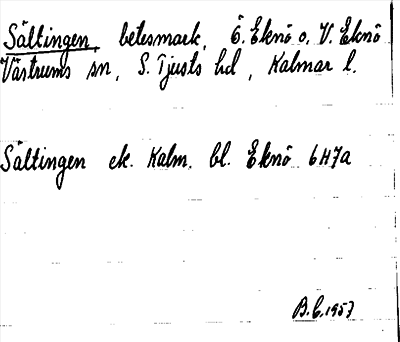 Sältingen, betesmark, Ö. Eknö o. V. Eknö
Västrums sn, S. Tjusts hd, Kalmar l.
Sältingen ek. Kalm. bl. Eknö 6H7a
B.G. 1957